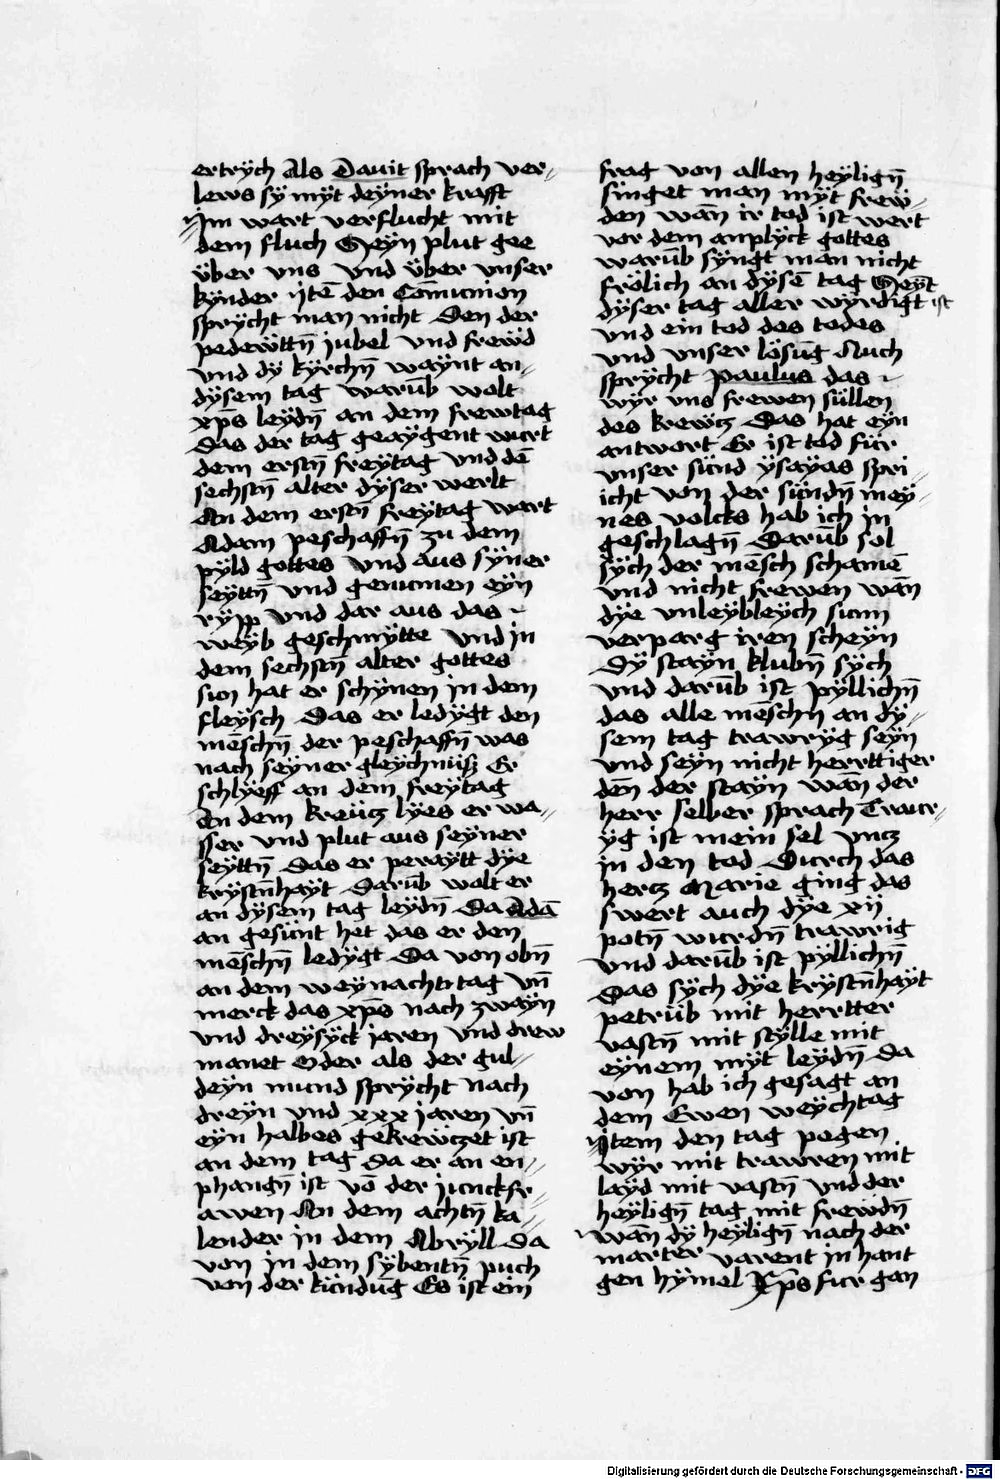 ertrÿch Als Dauit sprach ver-
lews sÿ mÿt deÿner krafft
Im wart verflucht mit
dem fluch Seÿn plut gee
über vns vnd über vnser
kÿnder ytē den Comunion
sprÿcht man nicht Den der
pedewttn̄ jubel vnd frewd
vnd dÿ kÿrchn̄ waÿnt an-
dÿsem tag warūb wolt
xp̄s leÿdn̄ an dem frewtag
Das der tag geaÿgent wurt
dem erstn̄ freÿtag vnd dē
sechstn̄ alter dÿser werlt
An dem erstn̄ freÿtag wart
Adam peschaffn̄ zu dem
pÿld gottes vnd aus sÿner
seÿttn̄ vnd genumen eÿn
rÿpp vnd dar aus das
weÿb geschmÿtte vnd in
dem sechstn̄ alter gottes
sun hat er schÿnen in dem
fleÿsch Das er ledÿgt den
mēschn̄ der peschaffn̄ was
nach seÿner gleÿchnüsz Er
schlÿeff an dem freÿtag
En dem kreücz lÿes er wa-
sser vnd plut aus seÿner
seÿttn̄ Das er peraÿtt dÿe
krÿstn̄haÿt Darūb wolt er
an dÿsem tag leÿdn̄ Da Adā
an gesünt het das er den
mēschn̄ ledÿgt Da von obn̄
an dem weÿnachttag vn̄
merck das xp̄s nach zwaÿn
vnd dreÿsÿck jaren vnd drew
manet Oder als der gul-
deÿn mund sprÿcht nach
dreÿn vnd xxx jaren vn̄
eÿn halbes gekrewczet ist
an dem tag Da er an en-
phangn̄ ist vō der junckfr-
awen An dem achtn̄ ka-
lender in dem Abrÿll Da
von in dem sÿbentn̄ puch
von der kündūg Es ist ein
frag von allen heÿlign̄
singet man mÿt frew-
den wān ir tod ist wert
vor dem anplÿck gottes
warūb sÿngt man nicht
frölich an dÿsē tag Seÿt
dÿser tag aller wÿrdigt ist
vnd ein tod des todes
vnd vnser lösūg Auch
sprÿcht paulus das
wÿr vns frewen süllen
des krewcz Das hat eÿn
antwort Er ist tod für
vnser sünd ÿsaÿas spri-
icht von der sündn̄ meÿ-
nes volcks hab ich in
geschlagn̄ Darūb sol
sÿch der mēsch schamē
vnd nicht frewen wān
dÿe vnleÿbleÿch sunn
verparg iren scheÿn
Dÿ staÿn klubn̄ sÿch
vnd darūb ist pÿllichn̄
das alle mēschn an dÿ-
sem tag trawrÿg seÿn
vnd seÿn nicht herrttiger
dēn der staÿn wān der
herr selber sprach Trawr-
yg ist mein sel vncz
in den tod Durch das
hercz Marie ging das
swert auch dÿe xii
potn̄ wurdn̄ trawrig
vnd darūb ist pÿllichn̄
Das sÿch dÿe krÿstn̄haÿt
petrüb mit herrtter
vastn̄ mit stÿlle mit
eÿnem mÿt leÿdn̄ Da
von hab ich gesagt an
dem Ewen weÿchtag
Item den tag pegen
wÿr mit trawren mit
laÿd mit vastn̄ vnd der
heÿlign̄ tag mit frewdn̄
wān dÿ heÿlign̄ nach der
marter varent in hant
gen hÿmel Xp̄s fur gan
Digitalisierung gefördert durch die Deutsche Forschungsgemeinschaft - DFG